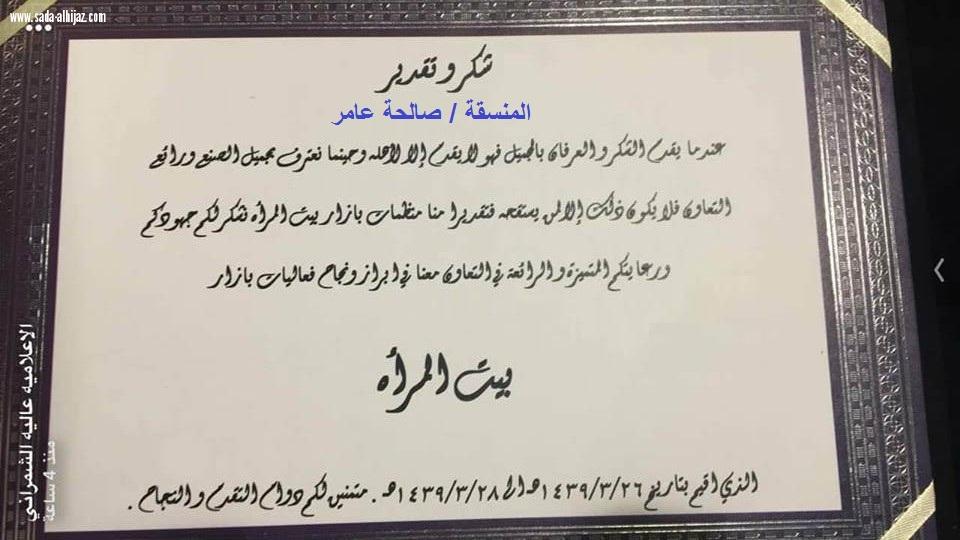 www.sada-alhijaz.com
شكر و تقدير
المنسقة / صالحة عامر
عندما يقدم الشكر و العرفان بالجميل فهو لا يقدم إلا لأهله وحينما نعترف بجميل الصنع ورائع
التعاون فلا يكون ذلك إلا لمن يستحقه فتقديرا منا منظمات بازار بيت المرأه نشكر لكم جهودكم
ورعايتكم المتميزة والرائعة في التعاون معنا في ابراز ونجاح فعاليات بازار
بيت المرأه
الذي اقيم بتاريخ ١٤٣٩/٣/٢٦هـ الى ١٤٣٩/٣/٢٨هـ . متمنين لكم دوام التقدم والنجاح .
الإعلاميه عاليه الشمراني
منذ 4 ساعة